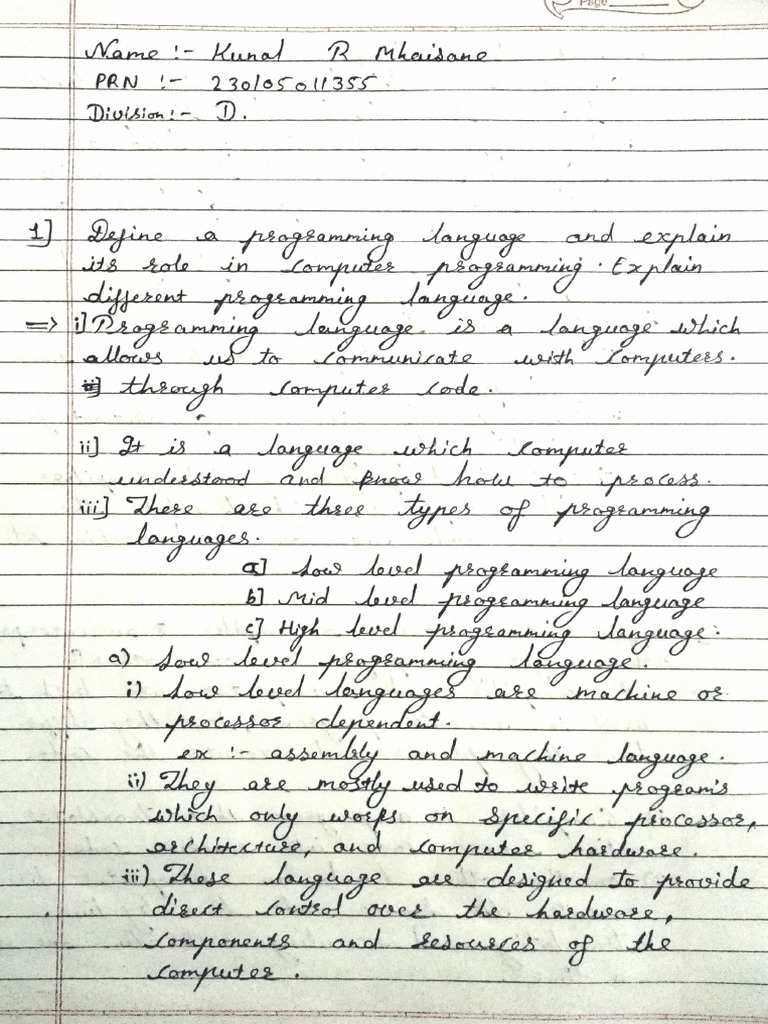 Page
Name :- Kunal R Mhaisane
PRN :- 230105011355
Division :- D.
1] Define a programming language and explain
its role in computer programming. Explain
different programming language.
=> i] Programming language is a language which
allows us to communicate with computers.
through computer code.
ii] It is a language which computer
understood and know how to process.
iii] There are three types of programming
languages.
a] Low level programming language
b] Mid level programming language
c] High level programming language.
a) Low level programming language.
i) Low level languages are machine or
processor dependent.
ex :- assembly and machine language.
ii) They are mostly used to write program's
which only works on specific processor,
architecture, and computer hardware.
iii) These language are designed to provide
direct control over the hardware,
components and resources of the
computer.